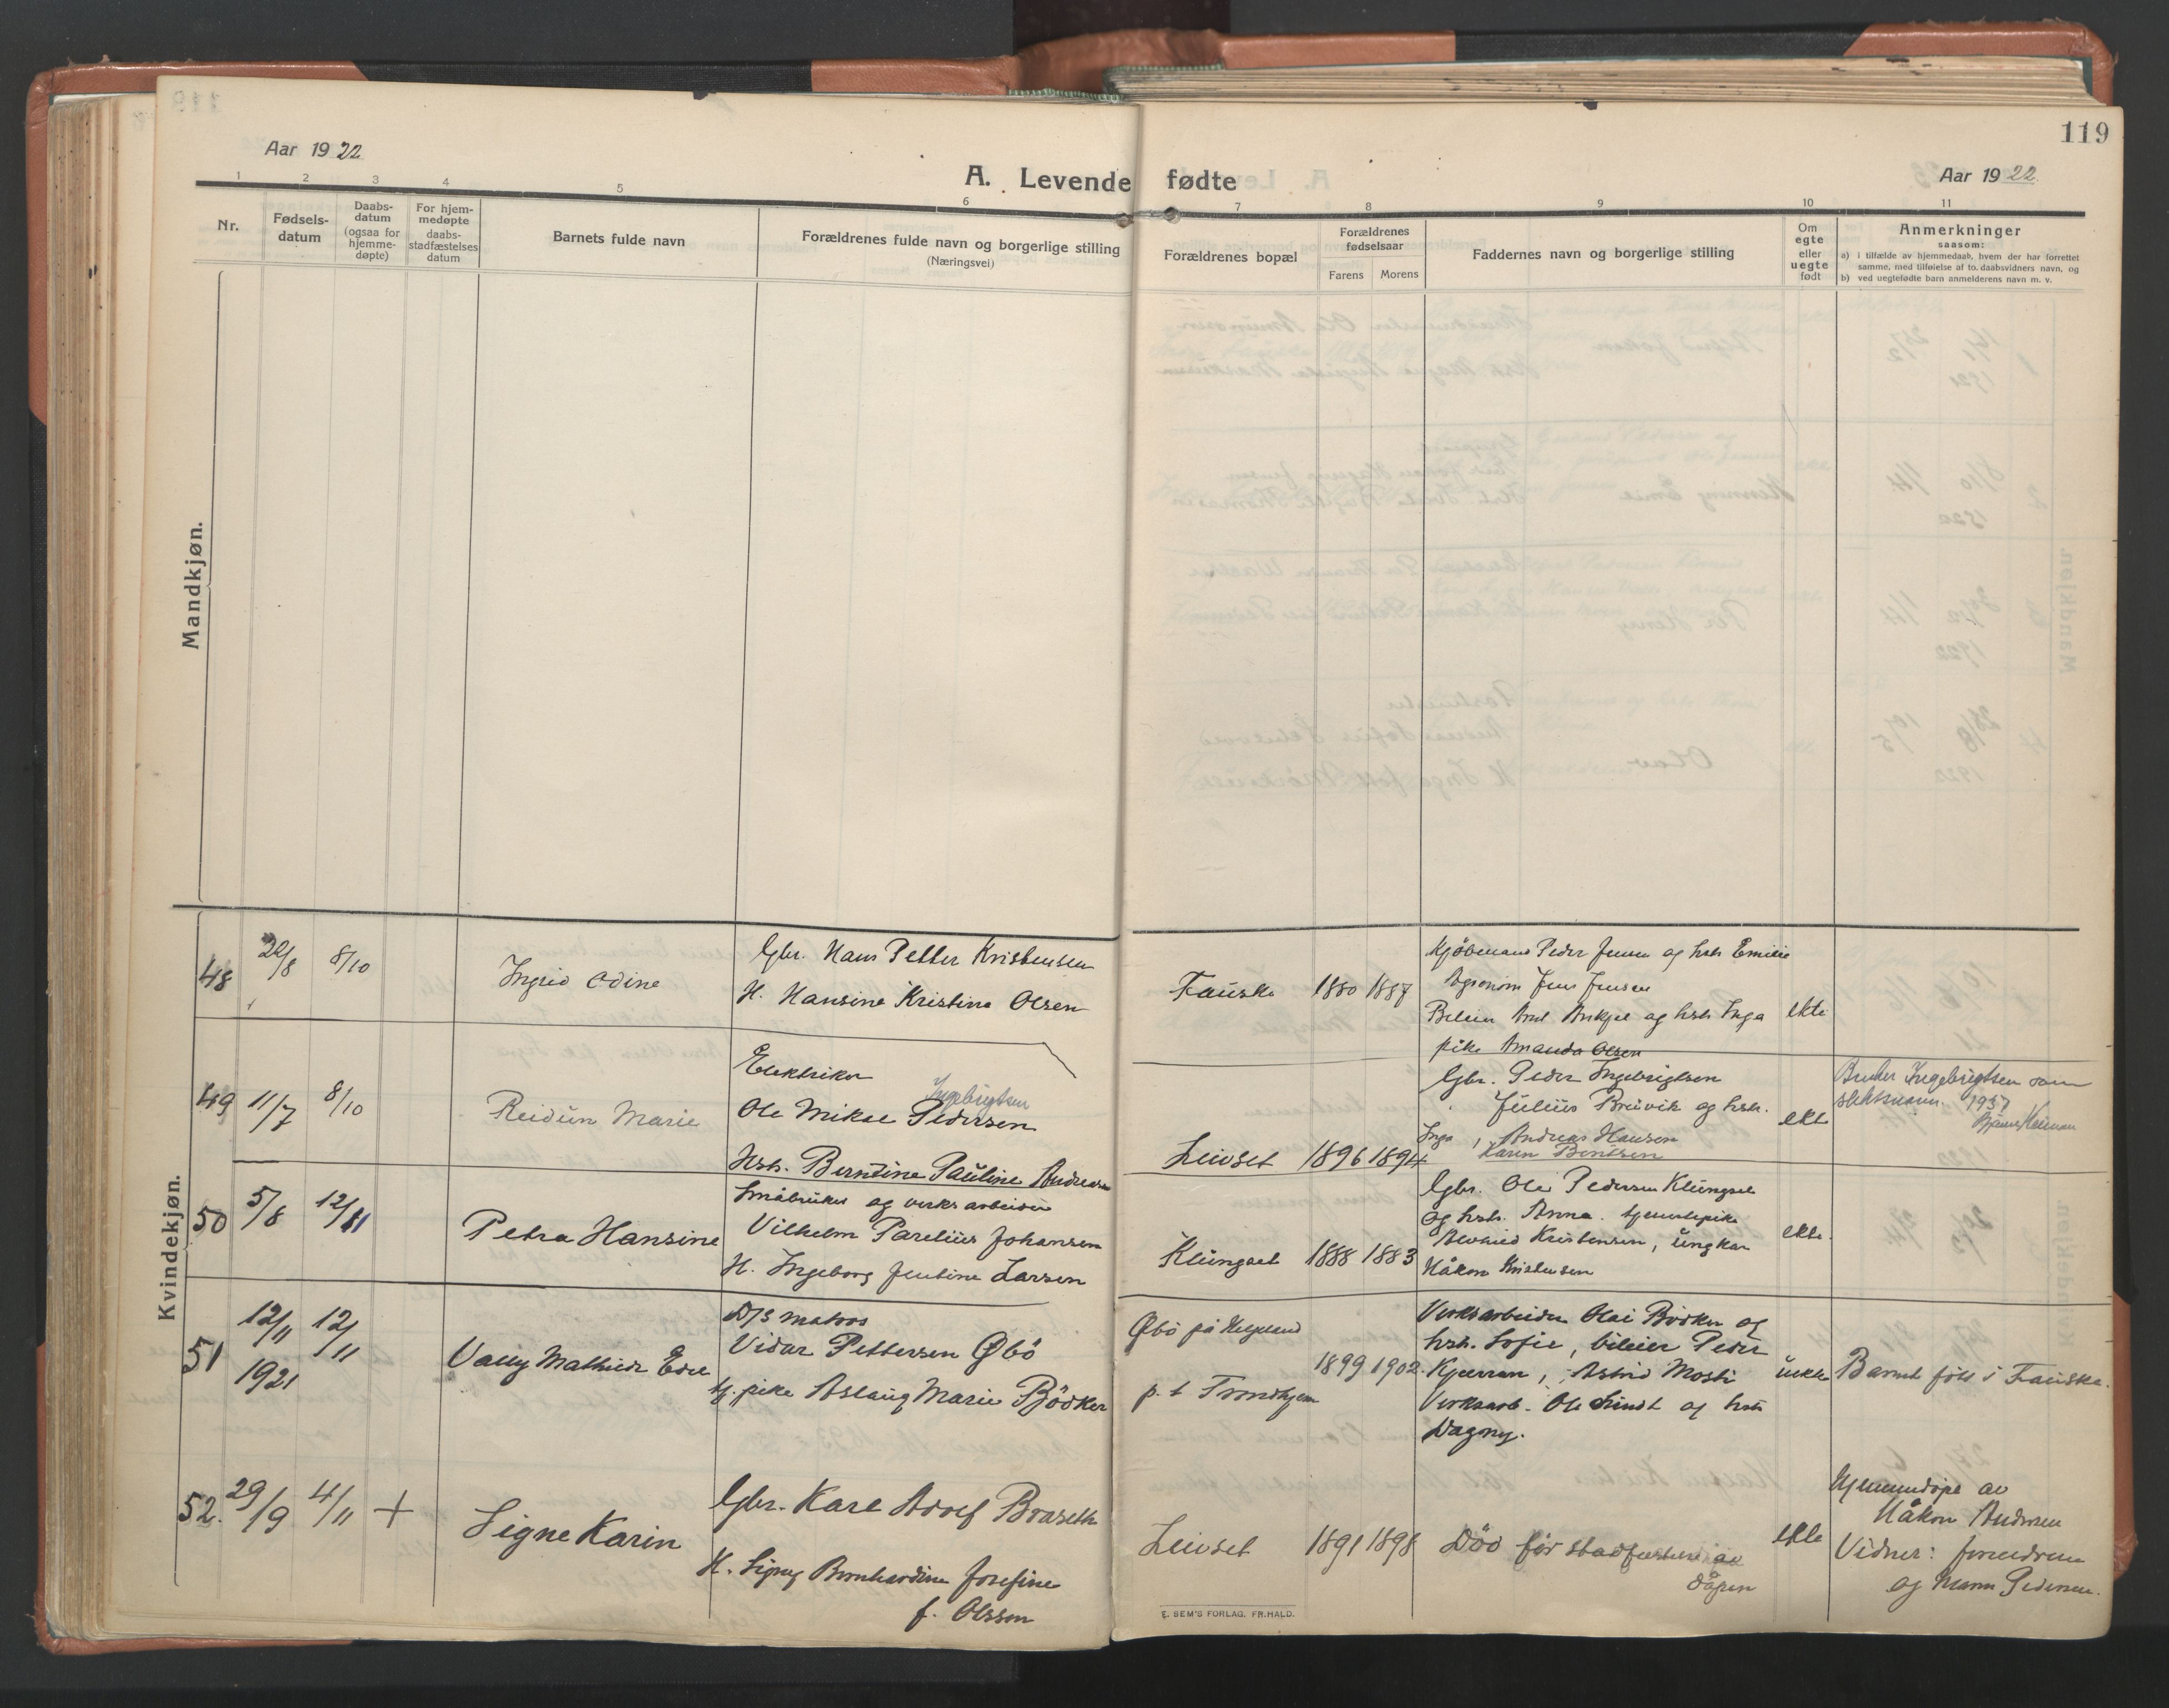 119
Aar 1922
A. Levende fødte
Aar 1922
1 2 3 4 5 6 7 8 9 10 11
Nr.
Fødsels-
datum
Daabs-
datum
(ogsaa for
hjemme-
døpte)
For hjem-
medøpte
daabs-
stadfæstelses
datum
Barnets fulde navn
Forældrenes fulde navn og borgerlige stilling
(Næringsvei)
Forældrenes bopæl
Forældrenes
fødselsaar
Farens Morens
Faddernes navn og borgerlige stilling
Om
egte
eller
uegte
født
Anmerkninger
saasom:
a) i tilfælde av hjemmedaab, hvem der har forrettet
samme, med tilføielse af to daabsvidners navn, og
b) ved uegtefødte barn anmelderens navn m. v.
Mandkjøn.
Kvindekjøn.
48
8/10
Ingrid Odine
Gbr. Hans Petter Kristensen
H. Hansine Kristine Olsen
Fauske
1880 1887
Kjöbmand Peder Jensen og hstr Emilie
Agronom Jens Jensen
og hstr Inga
pike Amanda Olsen
ekte
49
11/7
8/10
Reidun Marie
Elektriker
Ingebrigtsen
Ole Mikal Pedersen
Hstr. Berntine Pauline Andreasen
Leivset
1896 1894
Gbr. Peder Ingebrigtsen
Julius Breivik og hstr.
Inga, Andreas Hansen
Karen Bentsen
ekte
Bruker Ingebrigtsen som
slektsnavn. 1937
50
5/8
12/11
Petra Hansine
Småbruker og verksarbeider
Vilhelm Parelius Johansen
H. Ingeborg Jentine Larsen
Klungset
1888 1883
Gbr. Ole Pedersen Klungset
og hstr. Anna. tjenestepike
Kristensen, ungkar
Håkon Kristensen
ekte.
51
12/11
1921
12/11
Vally Mathilde Edel
D/S matros
Vidar Pettersen Øbö
tj. pike Aslaug Marie Bödker
Øbö på Helgeland
p. t Trondhjem
1899 1902.
Verksarbeider Olai Bödker og
hstr. Sofie, bileier Peder
Kjerran, Astrid Mosti
Verksarb. Ole Lindt og hstr
Dagony.
uekte
Barnet født i Fauske.
52.
29/9
4/11
+
Signe Karin
Gbr. Karl Adolf Braseth
H. Signy Bernhardine Josefine
f. Olsson
Leivset
1891 1898
Död för stadfestelse av
dåpen
ekte
Hjemmedöpt av
Håkon Andersen
Vidner: foreldrene
og Pedersen.
E. SEM'S FORLAG, FR.HALD.